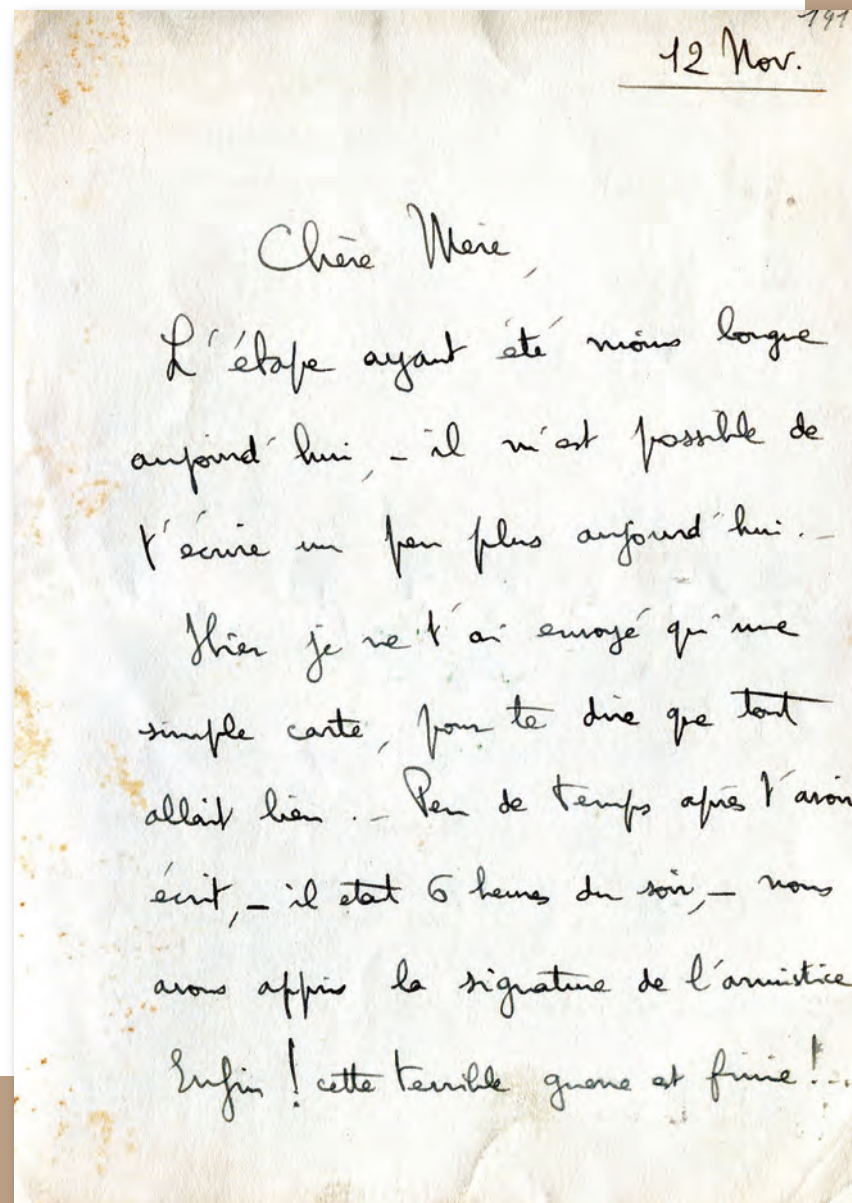 191
12 Nov.
Chère Mère,
L'étape ayant été moins longue
aujourd'hui, - il m'est possible de
t'écrire un peu plus aujourd'hui. -
Hier je ne t'ai envoyé qu'une
simple carte, pour te dire que tout
allait bien. - Peu de temps après t'avoir
écrit, - il était 6 heures du soir, - nous
avons appris la signature de l'armistice
Enfin ! cette terrible guerre est finie ! -